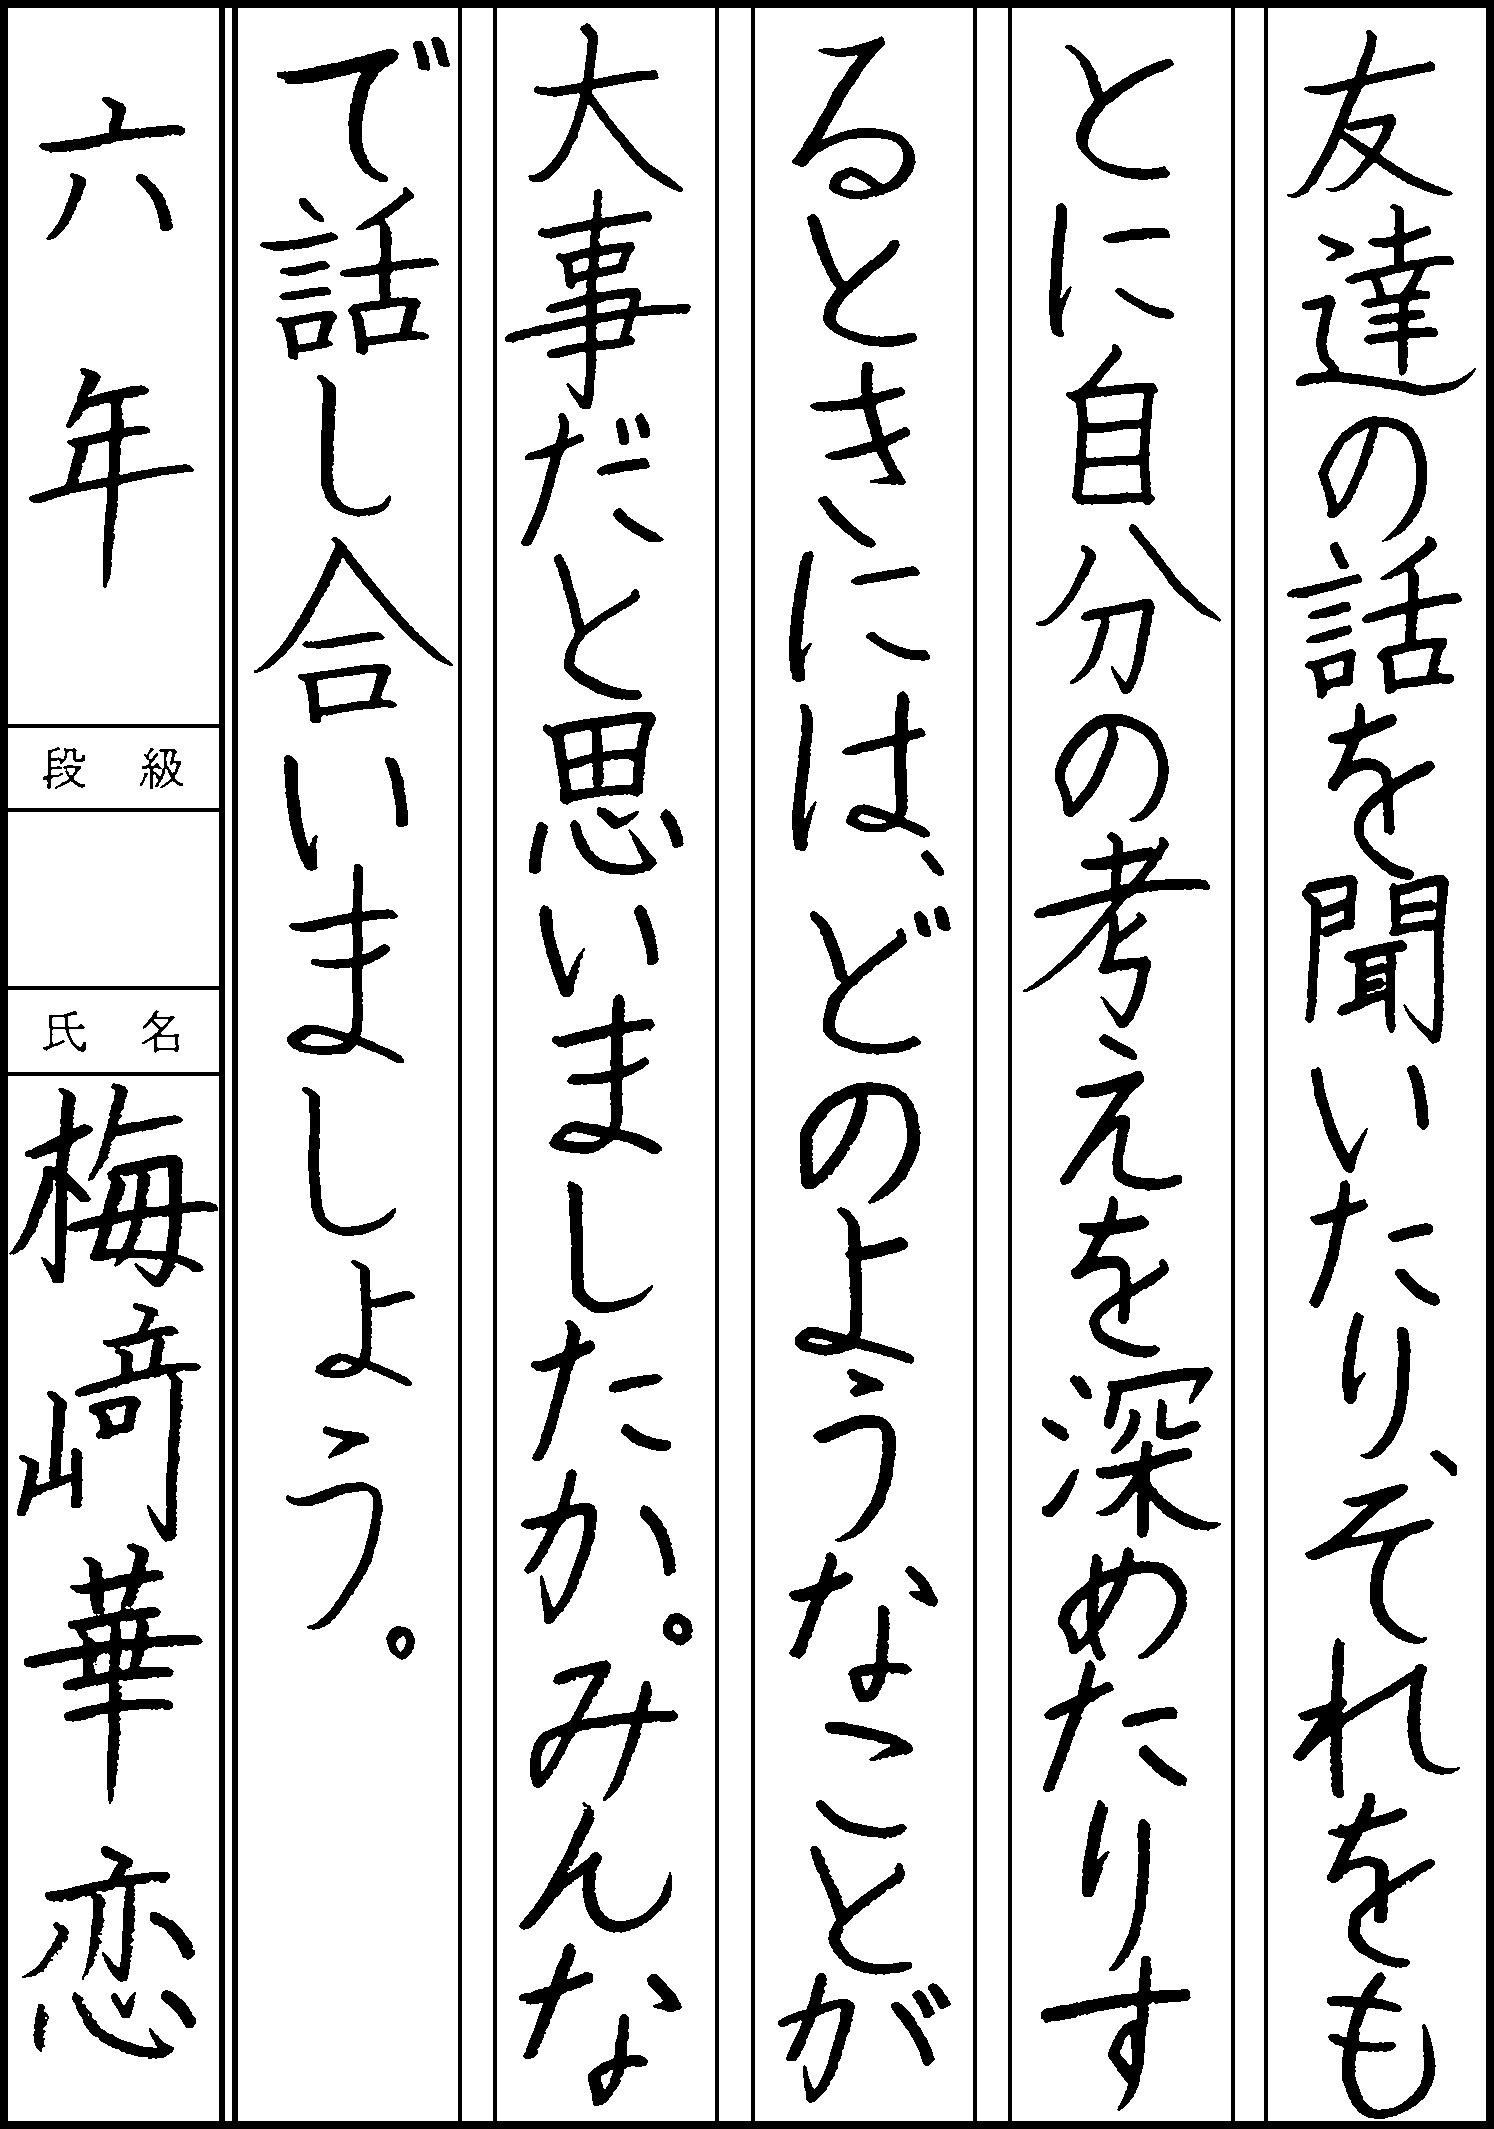 友達の話を聞いたり、それをも
とに自分の考えを深めたりす
るときには、どのようなことが
大事だと思いましたか。みんな
で話し合いましょう。
六年
段級
氏名
梅﨑華恋